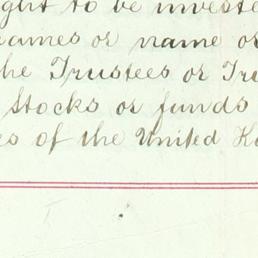 ght to be investe
names or name or
the Trustees or Tru
Stocks or funds
es of the United K